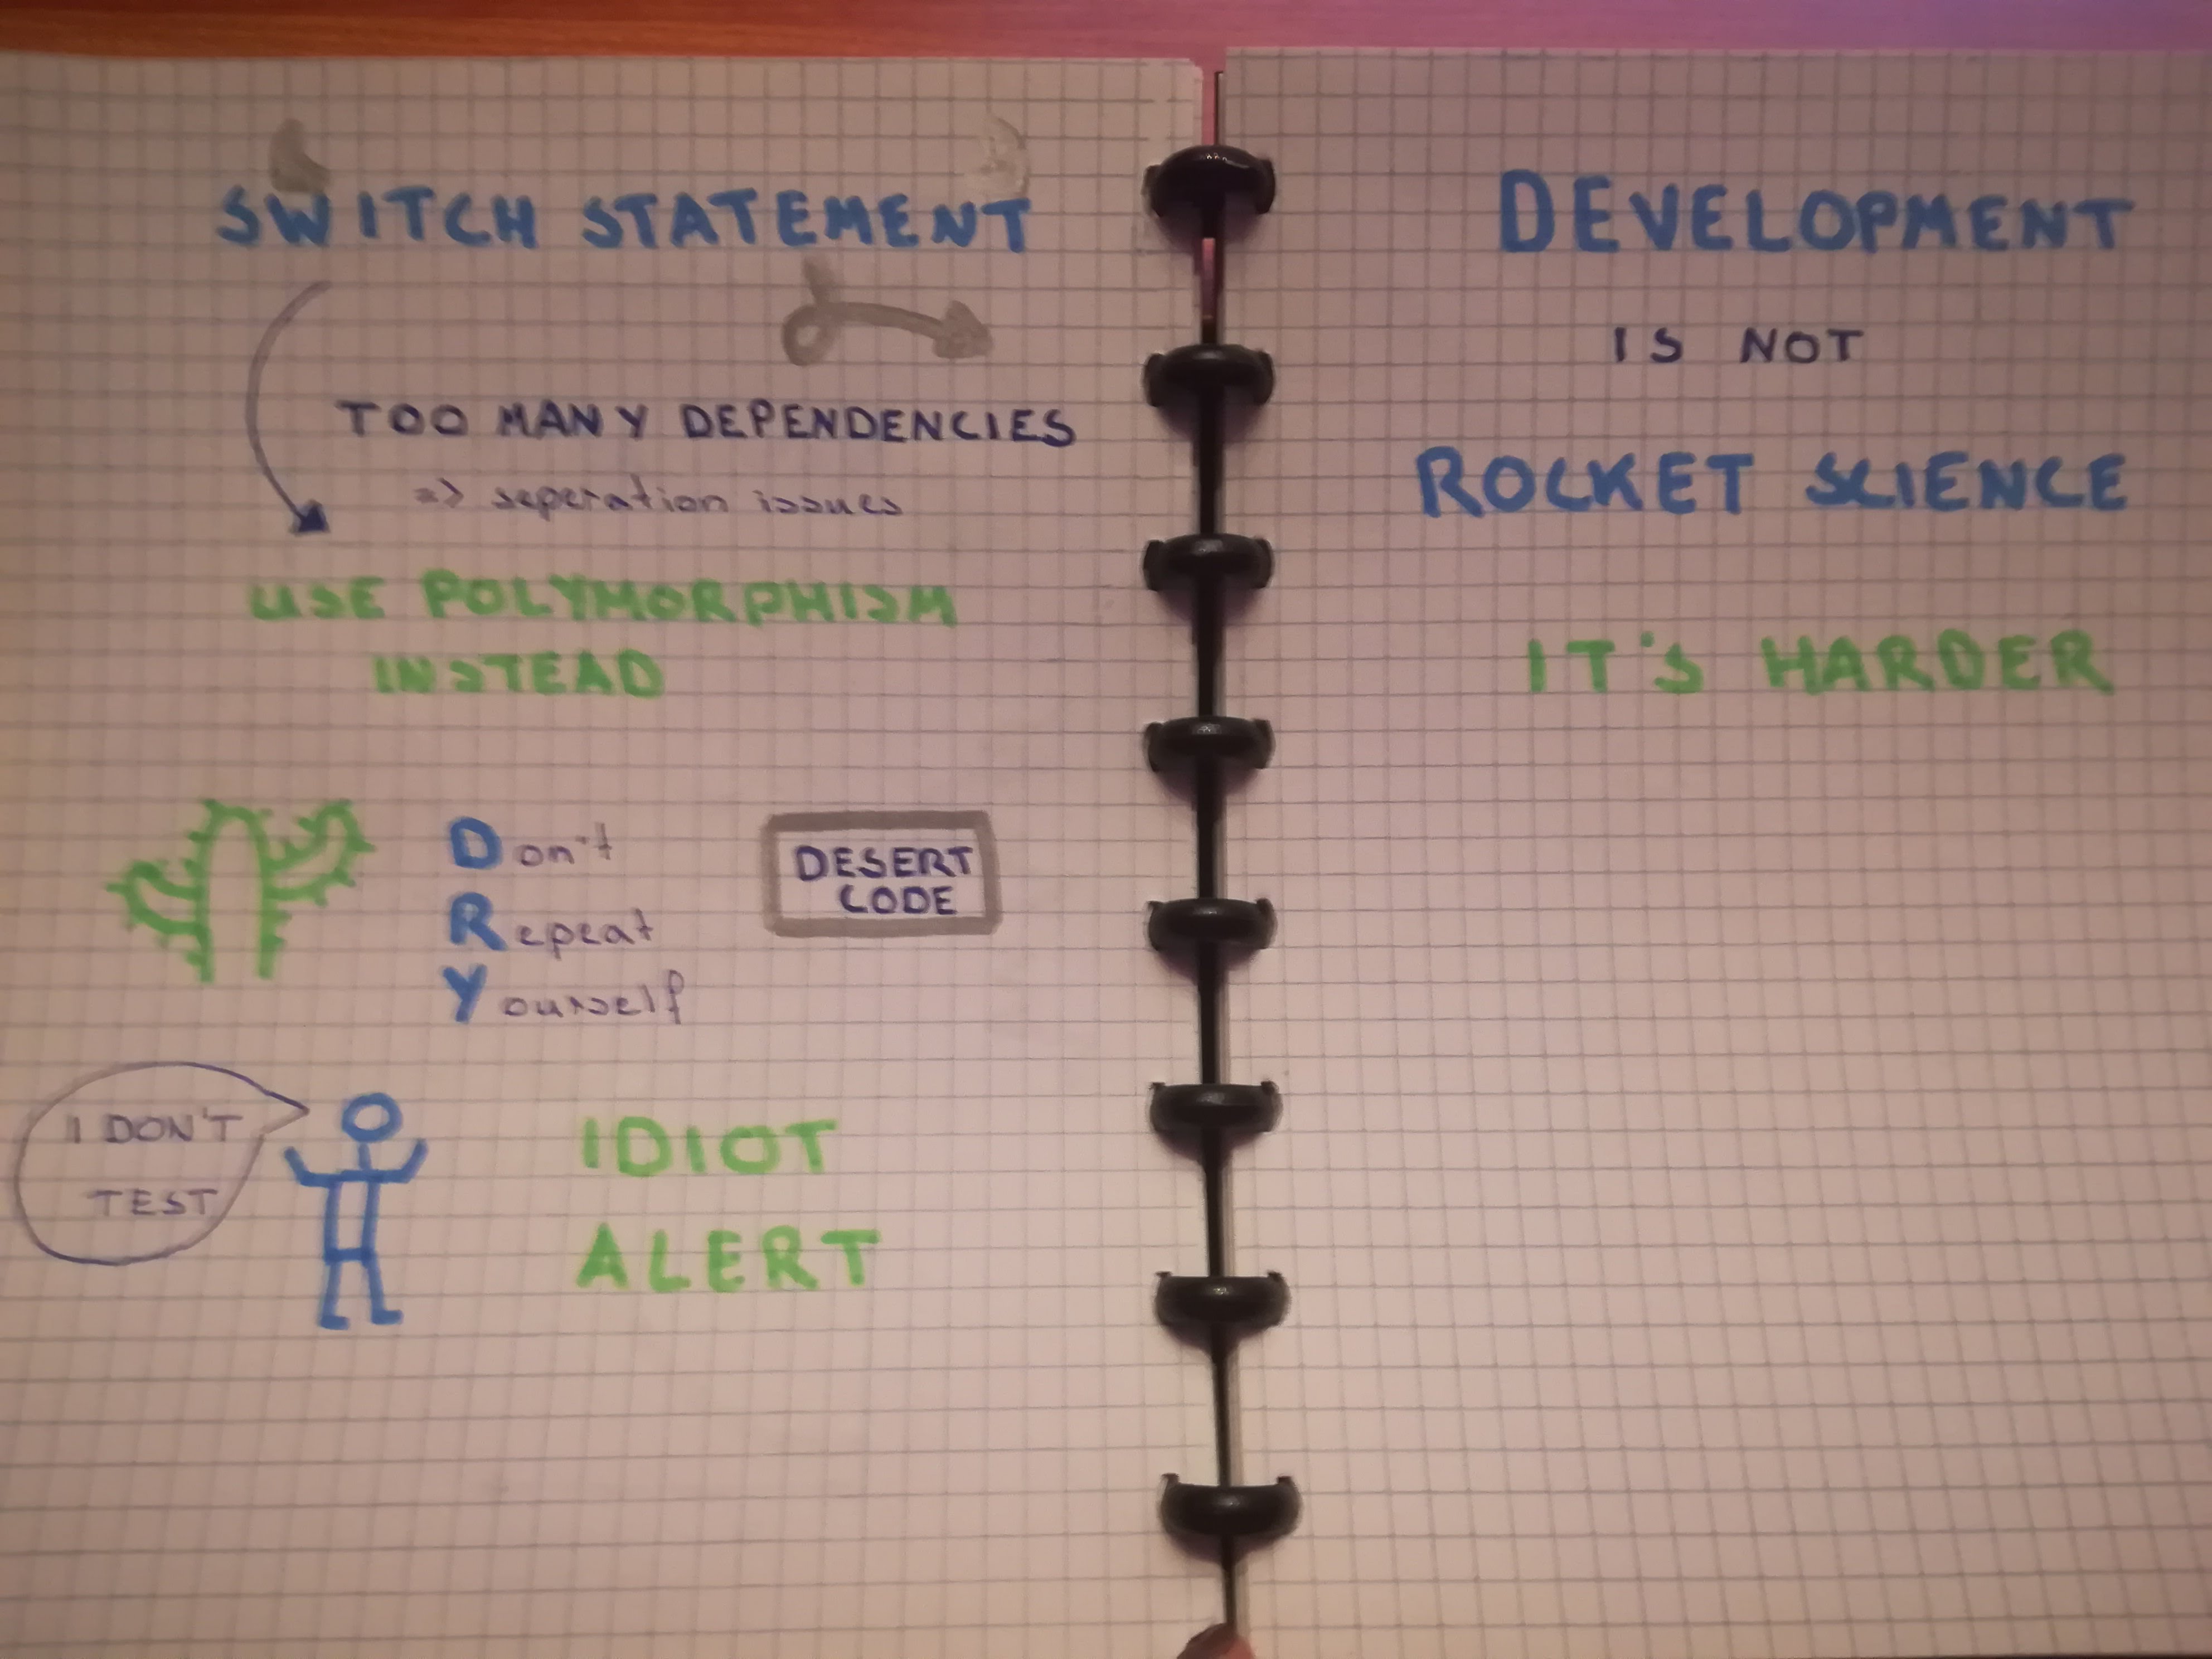 SWITCH STATEMENT
TOO MANY DEPENDENCIES
=> seperation issues
USE POLYMORPHISM
INSTEAD
Don't
Repeat
Yourself
DESERT
CODE
I DON'T
TEST
IDIOT
ALERT
DEVELOPMENT
IS NOT
ROCKET SCIENCE
IT'S HARDER